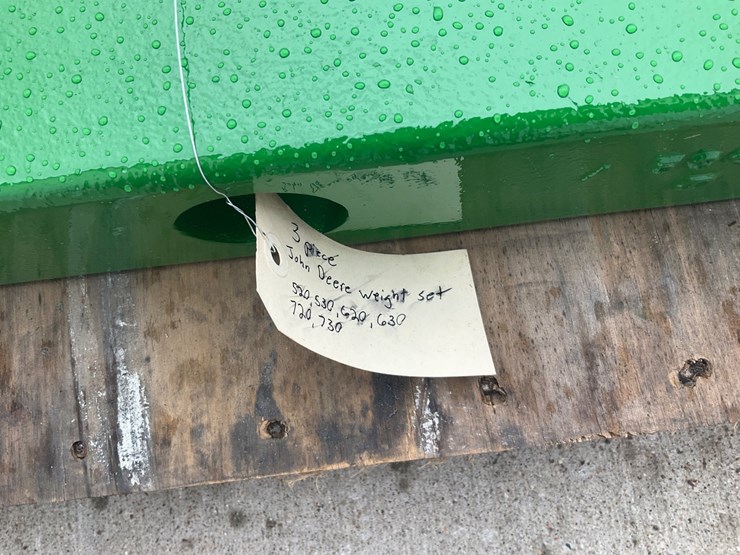 3 Piece
John Deere weight set
520, 530, 620, 630
720, 730